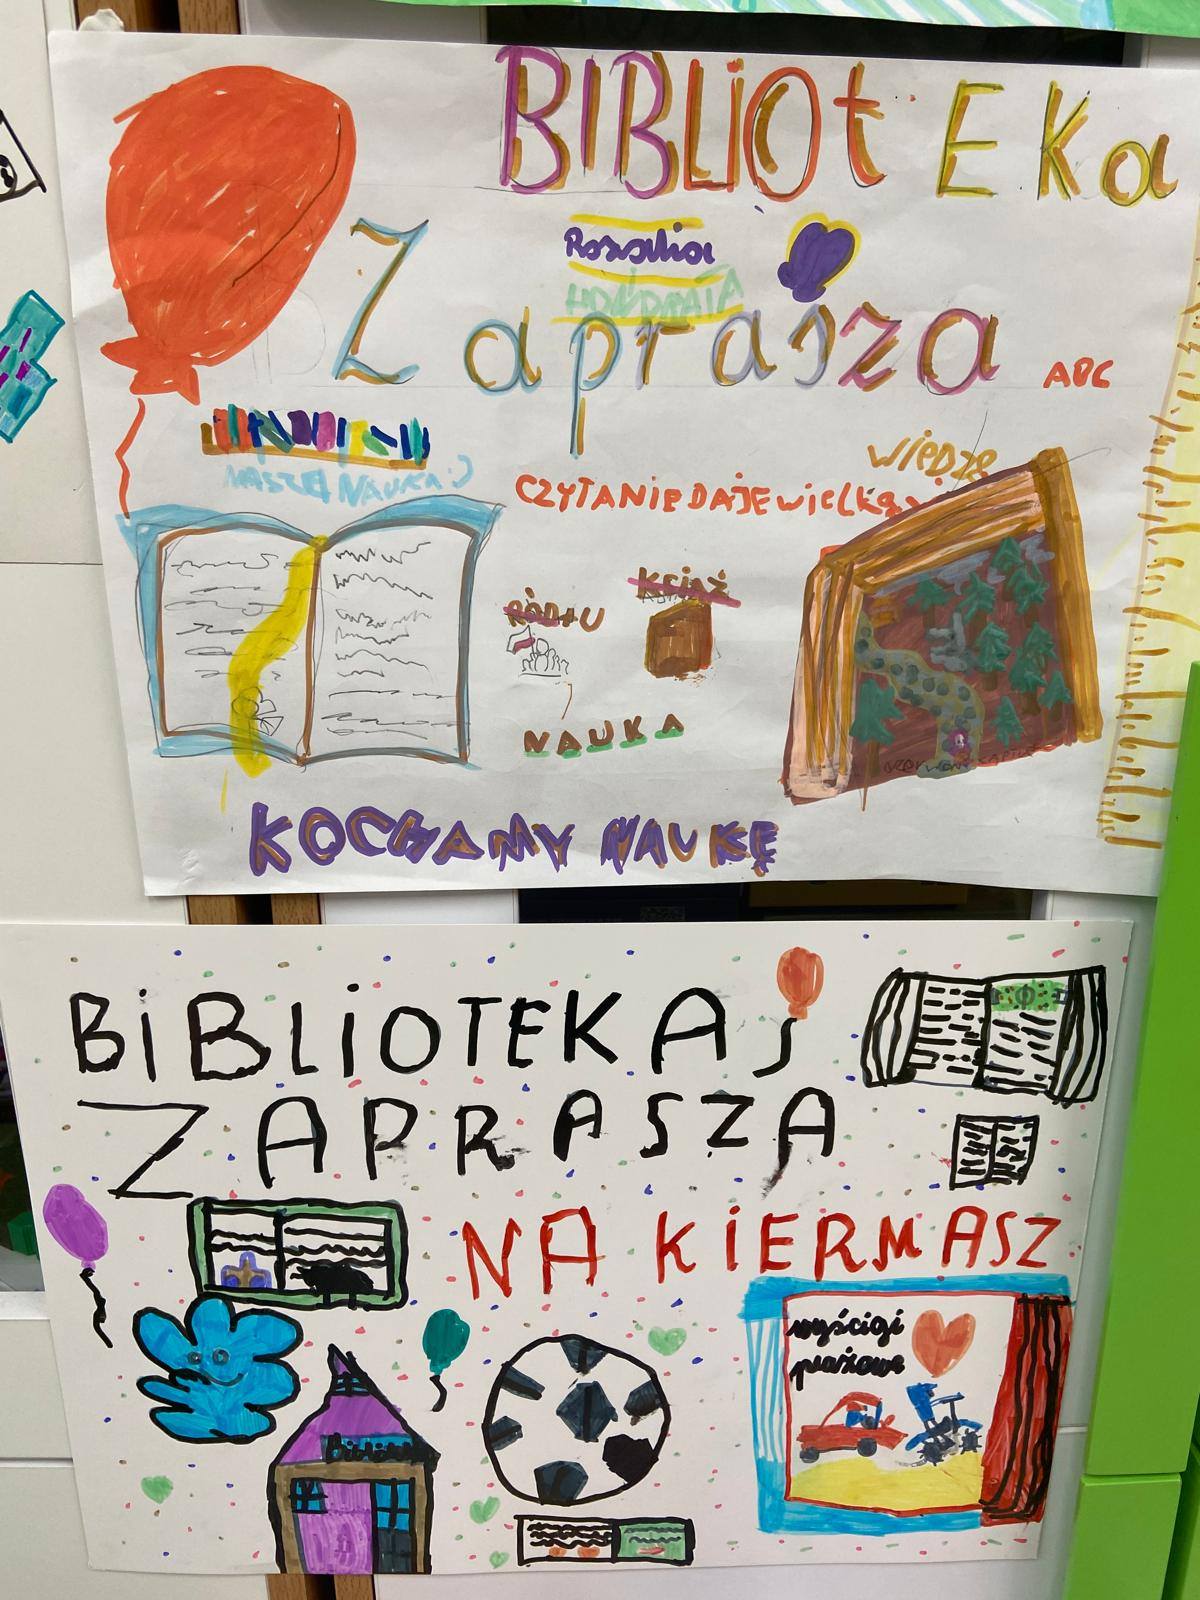 BIBLiOtEKa
Rozalia
Zaprasza
ABC
NASZEJ NAUKA:)
WIEDZĘ
CZYTANIE DAJE WIELKĄ
KSIĄŻ
NAUKA
KOCHAMY NAUKĘ
BiBLiOTEKA J
ZAPRASZA
NA KiERMASZ
wyścigi
plażowe